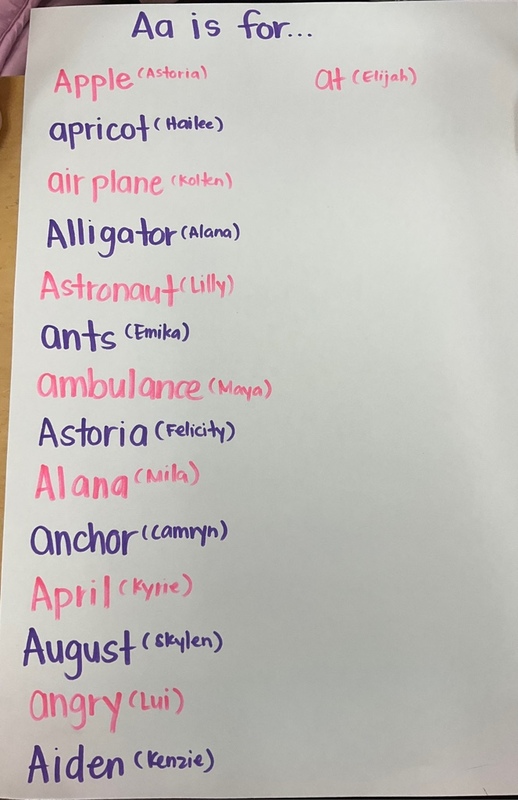 Aa is for...
Apple (Astoria)
at (Elijah)
apricot (Hailee)
air plane (Kolten)
Alligator (Alana)
Astronaut (Lilly)
ants (Emika)
ambulance (Maya)
Astoria (Felicity)
Alana (Mila)
anchor (Camryn)
April (Kyrie)
August (Skylen)
angry (Lui)
Aiden (Kenzie)